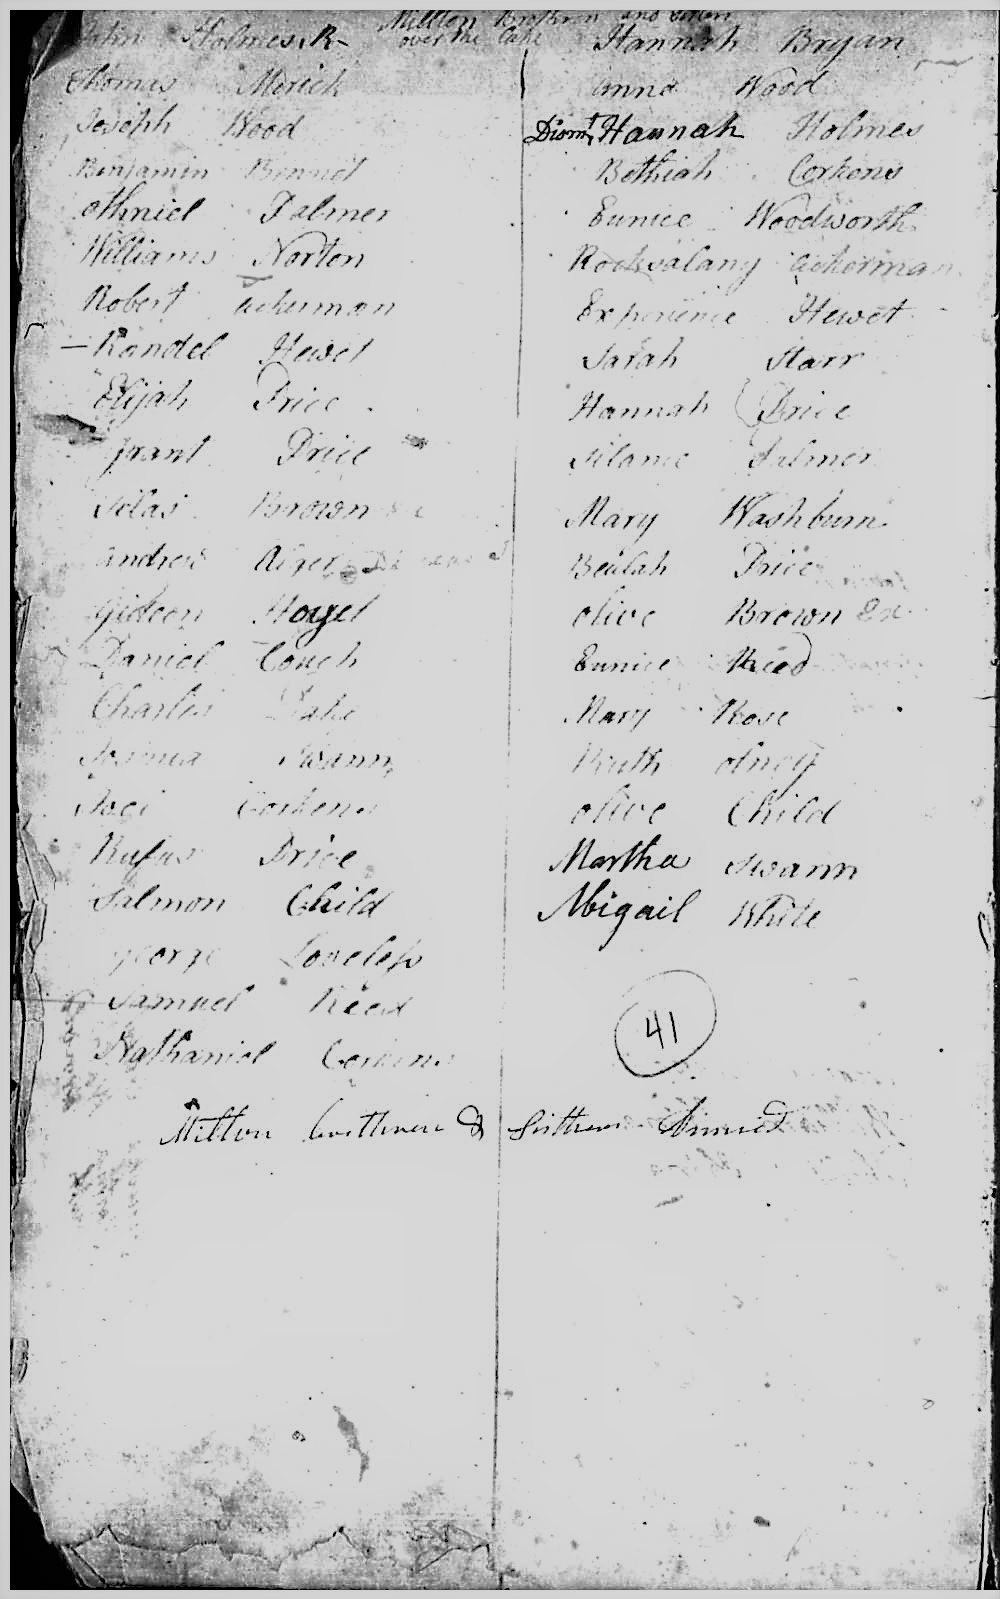 Millton Brothren and Sisters
over the Lake
John Holmes R
Thomas Mirick
Joseph Wood
Benjamin Bennet
othniel Palmer
Williams Norton
Robert ackerman
Randel Hewet
Elijah Price
grant Price
Silas Brown
andrew
Gideon Hoyet
Daniel Couch
Charles
Joshua Swann
Corkens
Rufus Price
Salmon Child
george Loveless
Samuel Reed
Nathaniel Corkins
Hannah Bryan
anna Wood
Dismt Hannah Holmes
Bethiah Corkens
Eunice Woodworth
Rocksalany ackerman
Experience Hewet
Sarah Starr
Hannah Price
Silame Palmer
Mary Washburn
Beulah Price
olive Brown Ex
Eunice Reed
Mary Rose
Ruth olney
olive Child
Martha Swann
Abigail White
41
Milton brethren & Sisthren